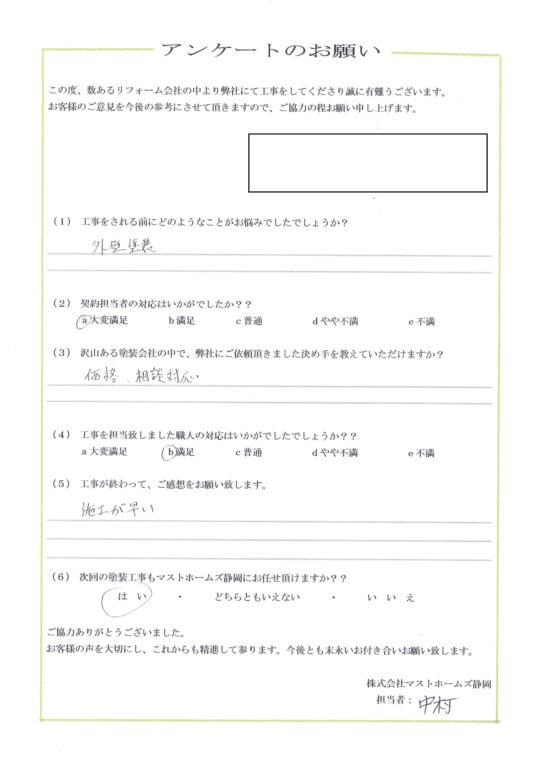 アンケートのお願い
この度、数あるリフォーム会社の中より弊社にて工事をしてくださり誠に有難うございます。
お客様のご意見を今後の参考にさせて頂きますので、ご協力の程お願い申し上げます。
(1) 工事をされる前にどのようなことがお悩みでしたでしょうか？
外壁塗装
(2) 契約担当者の対応はいかがでしたか？？
a 大変満足 b 満足 c 普通 d やや不満 e 不満
(3) 沢山ある塗装会社の中で、弊社にご依頼頂きました決め手を教えていただけますか？
価格、相談対応
(4) 工事を担当致しました職人の対応はいかがでしたでしょうか？？
a 大変満足 b 満足 c 普通 d やや不満 e 不満
(5) 工事が終わって、ご感想をお願い致します。
施工が早い
(6) 次回の塗装工事もマストホームズ静岡にお任せ頂けますか？？
はい ・ どちらともいえない ・ いいえ
ご協力ありがとうございました。
お客様の声を大切にし、これからも精進して参ります。今後とも末永いお付き合いお願い致します。
株式会社マストホームズ静岡
担当者：中村